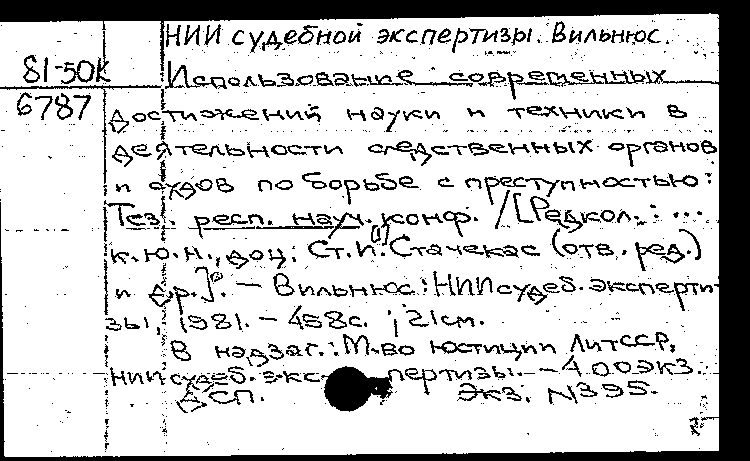 НИИ судебной экспертизы. Вильнюс.
81-50К
Использование современных
6787
достижений науки и техники в
деятельности следственных органов
и судов по борьбе с преступностью:
Тез. респ. науч. конф. / [Редкол.: ...
к.ю.н., доц. Ст.И. Стачекас (отв. ред.)
и др.]. - Вильнюс: НИИ судеб. эксперти-
зы, 1981. - 458с. ; 21см.
В надзаг.: М-во юстиции ЛитССР,
НИИ судеб. экспертизы. - 400экз.
ДСП. Экз. N395.